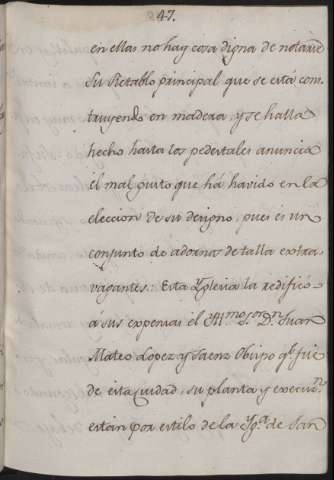 247.
en ellas no hay cosa digna de notarse
Su Retablo principal que se está cons
truyendo en madera, y se halla
hecho hasta los pedestales anuncia
el mal gusto que há havido en la
eleccion de su designo, pues es un
conjunto de adornos de talla extra-
vagantes: Esta Yglesia la redificó
á sus expensas el Yllmo. Sor. Dn. Juan
Mateo Lopez y Saenz Obispo qe. fué
de esta ciudad, su planta y execuon.
estan por estilo de la Yga. de San